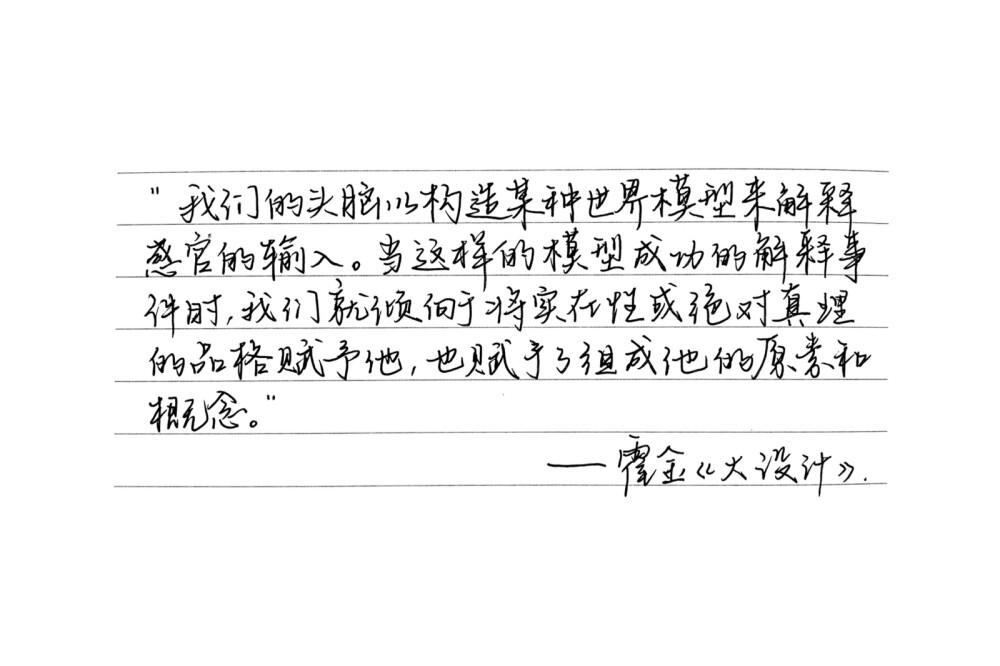 "我们的头脑以构造某种世界模型来解释
感官的输入。当这样的模型成功的解释事
件时,我们就倾向于将实在性或绝对真理
的品格赋予他,也赋予了组成他的原素和
概念。"
——霍金《大设计》.